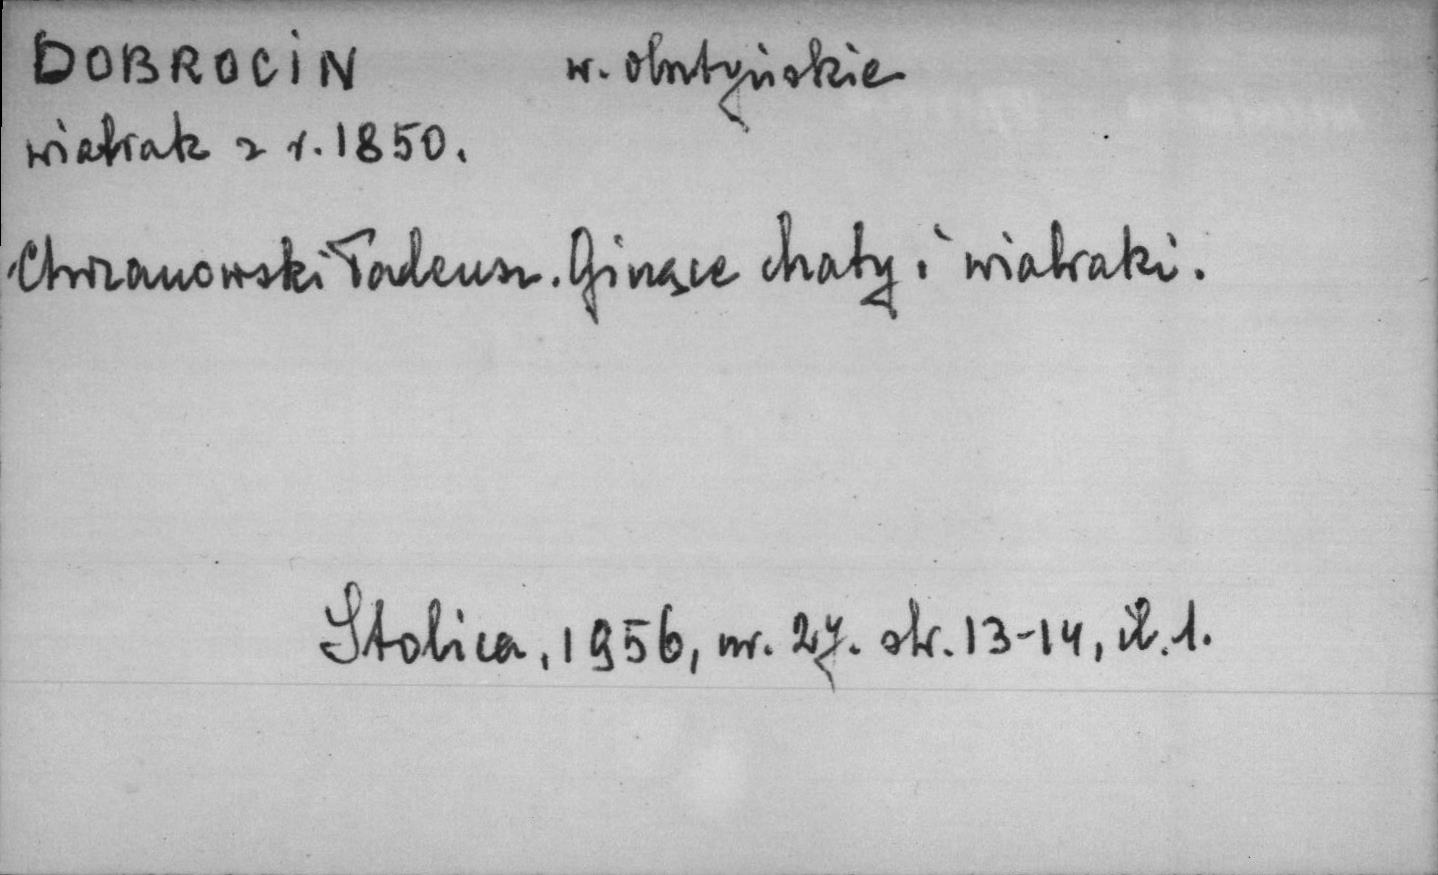 DOBROCIN w. olsztyńskie
wiatrak z r. 1850.
Chrzanowski Tadeusz. Ginące chaty i wiatraki.
Stolica, 1956, nr. 27. str. 13-14, il. 1.